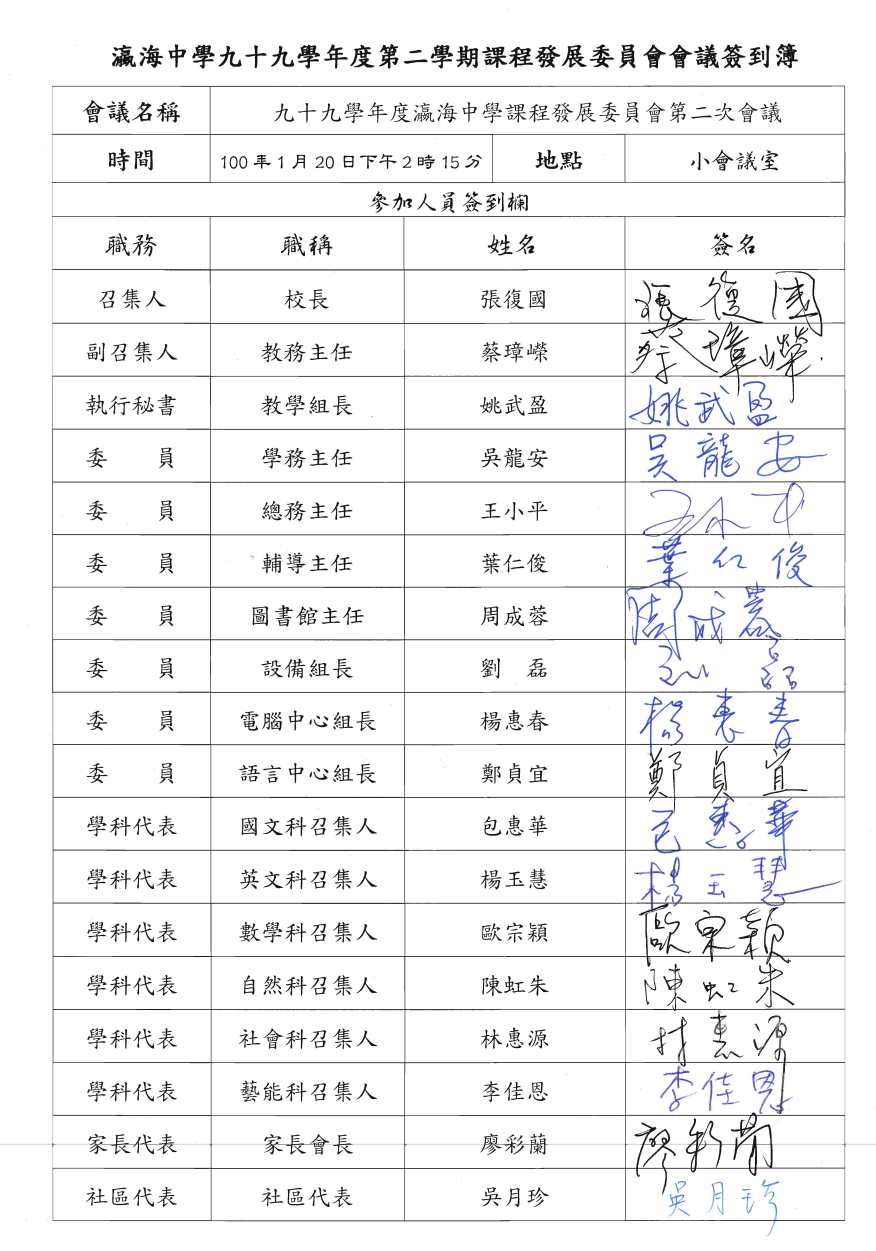 瀛海中學九十九學年度第二學期課程發展委員會會議簽到簿
會議名稱 九十九學年度瀛海中學課程發展委員會第二次會議
時間 100年1月20日下午2時15分 地點 小會議室
參加人員簽到欄
職務 職稱 姓名 簽名
召集人 校長 張復國 張復國
副召集人 教務主任 蔡璋嶸 蔡璋嶸
執行秘書 教學組長 姚武盈 姚武盈
委員 學務主任 吳龍安 吳龍安
委員 總務主任 王小平 王小平
委員 輔導主任 葉仁俊 葉仁俊
委員 圖書館主任 周成蓉 周成蓉
委員 設備組長 劉磊 劉磊
委員 電腦中心組長 楊惠春 楊惠春
委員 語言中心組長 鄭貞宜 鄭貞宜
學科代表 國文科召集人 包惠華 包惠華
學科代表 英文科召集人 楊玉慧 楊玉慧
學科代表 數學科召集人 歐宗穎 歐宗穎
學科代表 自然科召集人 陳虹朱 陳虹朱
學科代表 社會科召集人 林惠源 林惠源
學科代表 藝能科召集人 李佳恩 李佳恩
家長代表 家長會長 廖彩蘭 廖彩蘭
社區代表 社區代表 吳月珍 吳月珍